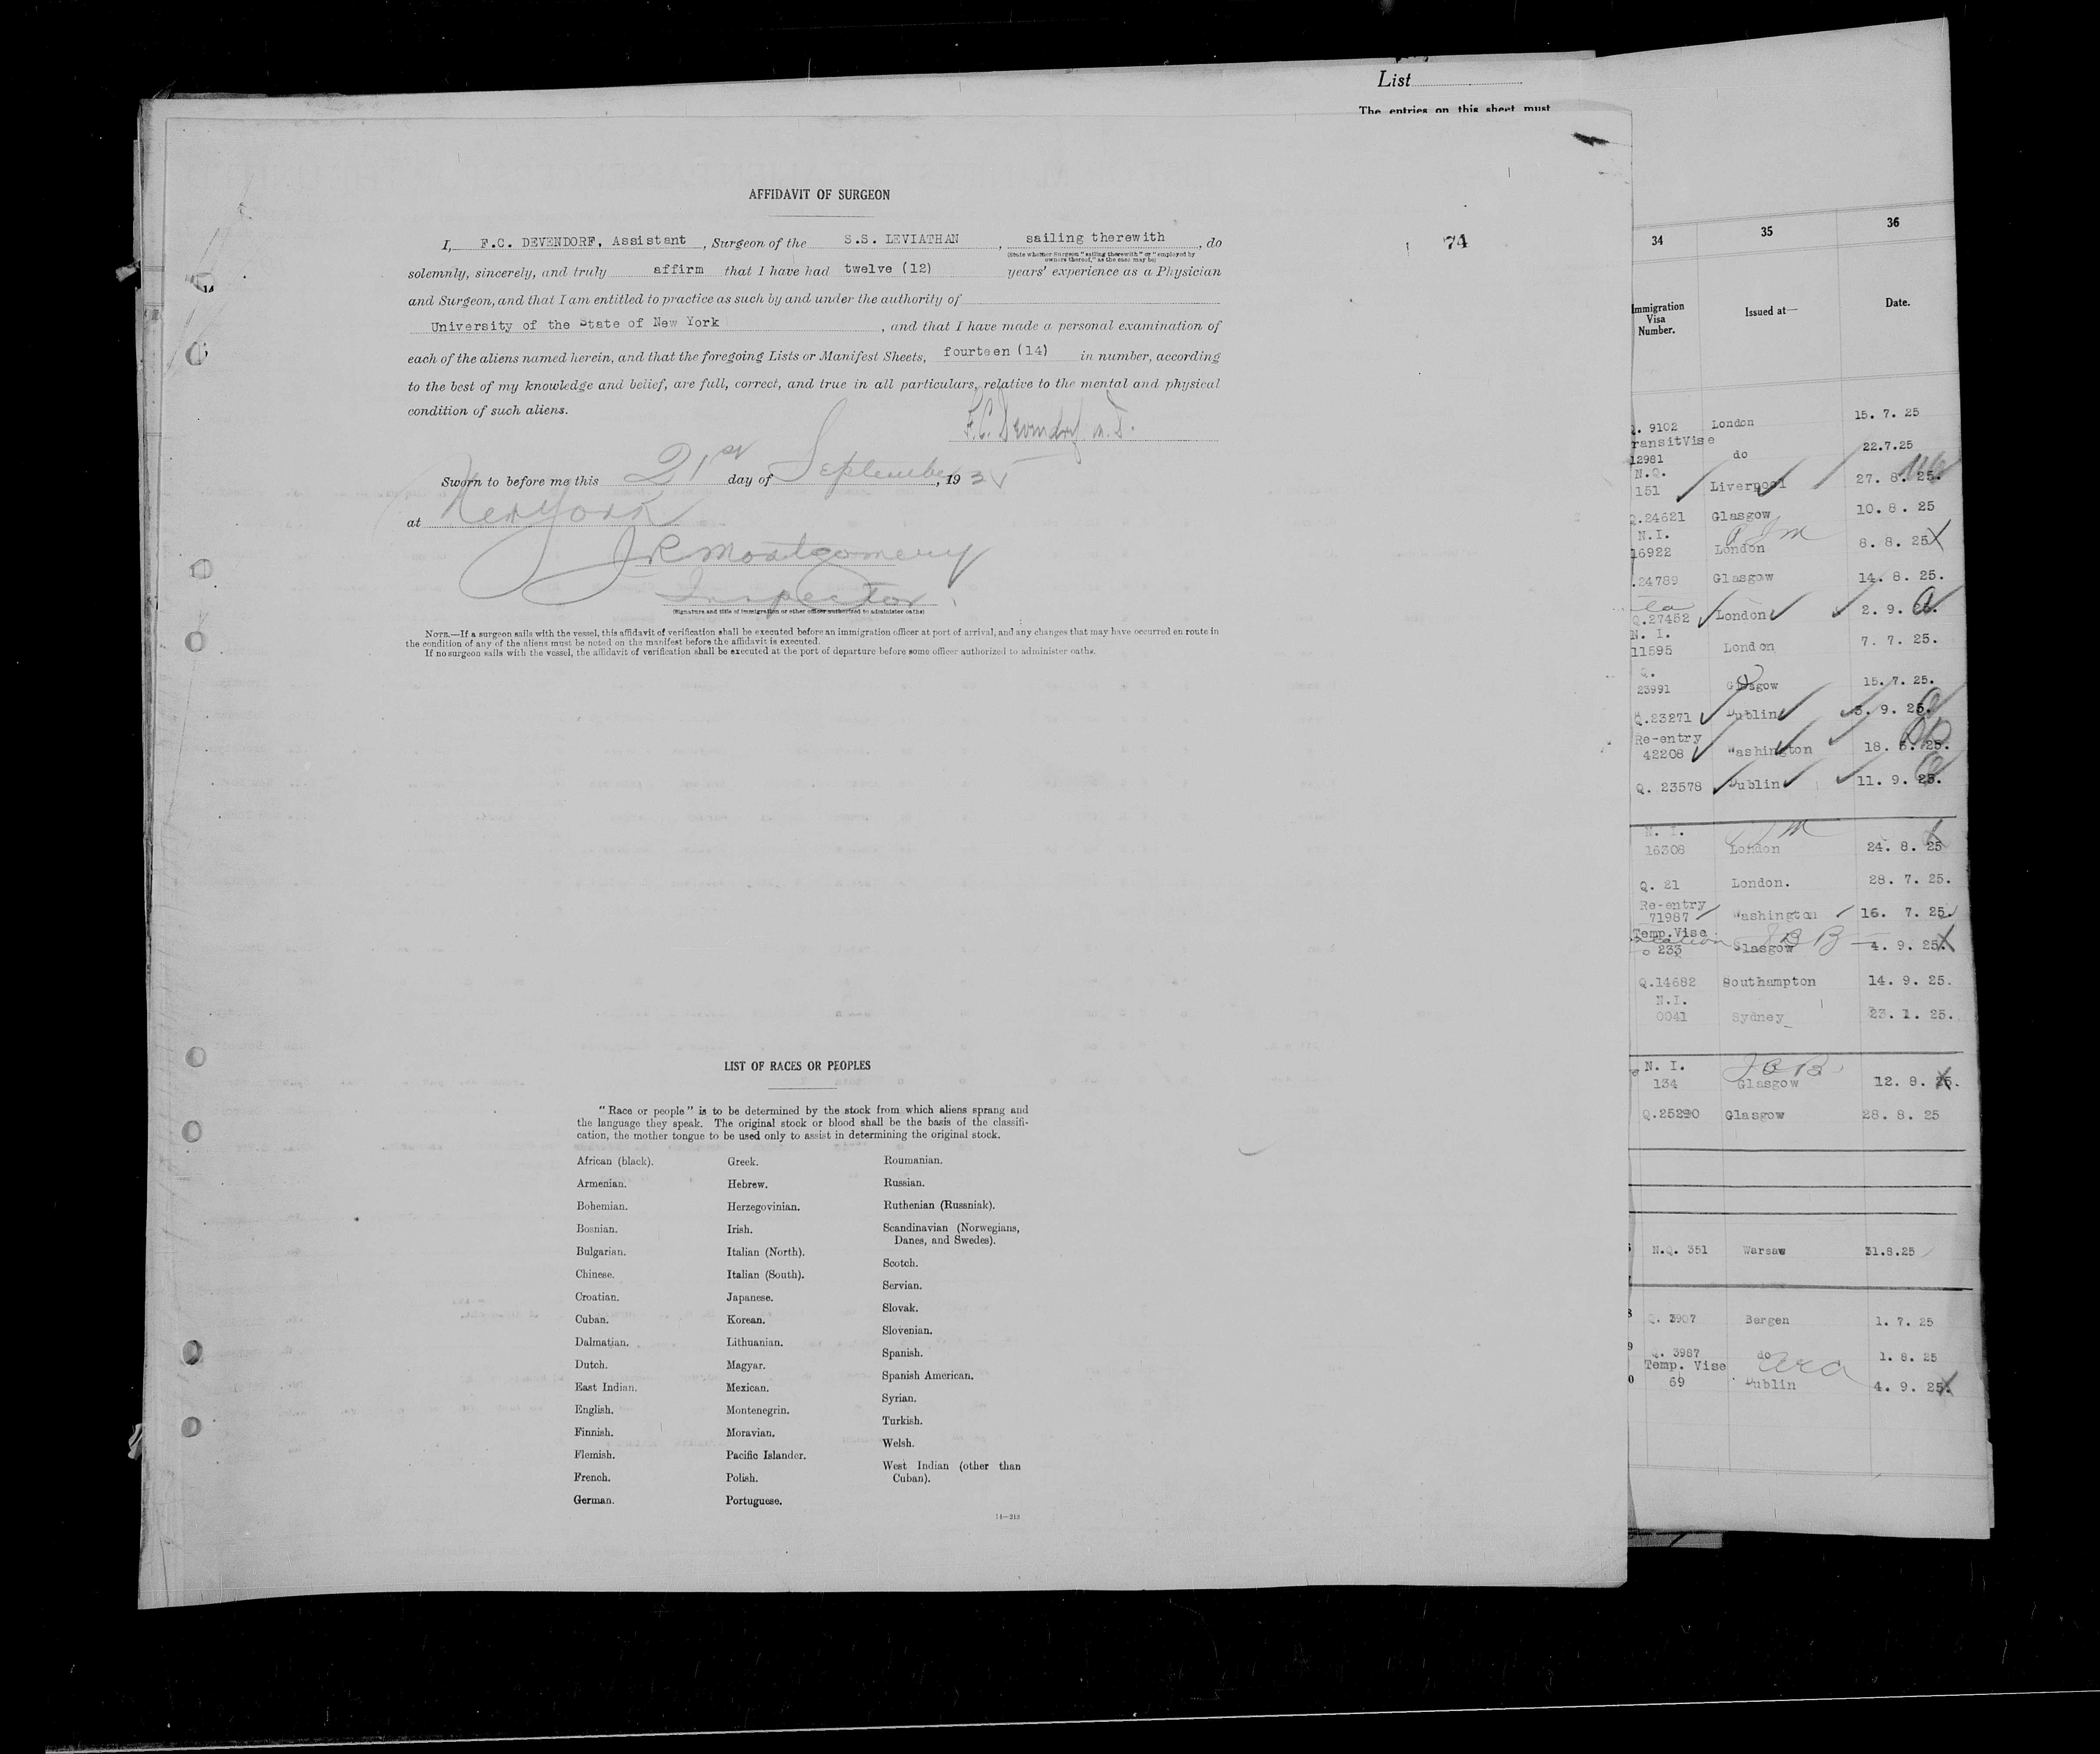 List
The entries on this sheet must
AFFIDAVIT OF SURGEON
I, F.C. DEVENDORF, Assistant, Surgeon of the S.S. LEVIATHAN, sailing therewith, do
(State whether Surgeon "sailing therewith" or "employed by
owners thereof," as the case may be)
74
solemnly, sincerely, and truly affirm that I have had twelve (12) years' experience as a Physician
and Surgeon, and that I am entitled to practice as such by and under the authority of
University of the State of New York, and that I have made a personal examination of
each of the aliens named herein, and that the foregoing Lists or Manifest Sheets, fourteen (14) in number, according
to the best of my knowledge and belief, are full, correct, and true in all particulars, relative to the mental and physical
condition of such aliens.
F.C. Devendorf M.D.
Sworn to before me this 21st day of September, 19
at New York
J R Montgomery
Inspector
(Signature and title of immigration or other officer authorized to administer oaths)
NOTE.—If a surgeon sails with the vessel, this affidavit of verification shall be executed before an immigration officer at port of arrival, and any changes that may have occurred en route in
the condition of any of the aliens must be noted on the manifest before the affidavit is executed.
If no surgeon sails with the vessel, the affidavit of verification shall be executed at the port of departure before some officer authorized to administer oaths.
LIST OF RACES OR PEOPLES
"Race or people" is to be determined by the stock from which aliens sprang and
the language they speak. The original stock or blood shall be the basis of the classifi-
cation, the mother tongue to be used only to assist in determining the original stock.
African (black).
Armenian.
Bohemian.
Bosnian.
Bulgarian.
Chinese.
Croatian.
Cuban.
Dalmatian.
Dutch.
East Indian.
English.
Finnish.
Flemish.
French.
German.
Greek.
Hebrew.
Herzegovinian.
Irish.
Italian (North).
Italian (South).
Japanese.
Korean.
Lithuanian.
Magyar.
Mexican.
Montenegrin.
Moravian.
Pacific Islander.
Polish.
Portuguese.
Roumanian.
Russian.
Ruthenian (Russniak).
Scandinavian (Norwegians,
Danes, and Swedes).
Scotch.
Servian.
Slovak.
Slovenian.
Spanish.
Spanish American.
Syrian.
Turkish.
Welsh.
West Indian (other than
Cuban).
14—213
34 35 36
Immigration
Visa
Number.
Issued at—
Date.
Q. 9102 London 15. 7. 25
TransitVise
12981 do 22.7.25
N.Q.
151 Liverpool 27. 8. 25.
Q.24621 Glasgow 10. 8. 25
N.I.
16922 London 8. 8. 25
.24789 Glasgow 14. 8. 25.
Q.27452 London 2. 9. 25.
N. I.
11595 London 7. 7. 25.
Q.
23991 Glasgow 15. 7. 25.
Q.23271 Dublin 3. 9. 25.
Re-entry
42208 Washington 18. 6. 25.
Q. 23578 Dublin 11. 9. 25.
N. I.
16308 London 24. 8. 25
Q. 21 London. 28. 7. 25.
Re-entry
71987 Washington 16. 7. 25.
Temp.Vise
233 Glasgow 4. 9. 25.
Q.14682 Southampton 14. 9. 25.
N.I.
0041 Sydney 23. 1. 25.
N. I.
134 Glasgow 12. 9. 25.
Q.25290 Glasgow 28. 8. 25
N.Q. 351 Warsaw 31.8.25
Q. 3907 Bergen 1. 7. 25
Q. 3987 do 1. 8. 25
Temp. Vise
69 Dublin 4. 9. 25.